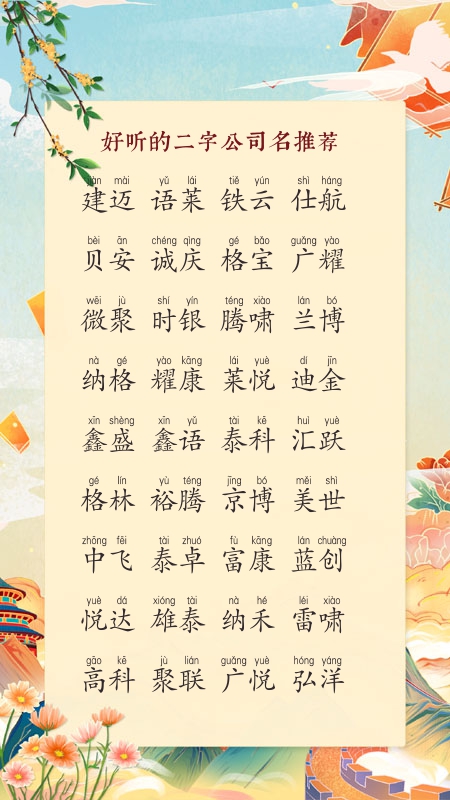 好听的二字公司名推荐
jiàn mài yǔ lái tiě yún shì háng
建迈 语莱 铁云 仕航
bèi ān chéng qìng gé bǎo guǎng yào
贝安 诚庆 格宝 广耀
wēi jù shí yín téng xiào lán bó
微聚 时银 腾啸 兰博
nà gé yào kāng lái yuè dí jīn
纳格 耀康 莱悦 迪金
xīn shèng xīn yǔ tài kē huì yuè
鑫盛 鑫语 泰科 汇跃
gé lín yù téng jīng bó měi shì
格林 裕腾 京博 美世
zhōng fēi tài zhuó fù kāng lán chuàng
中飞 泰卓 富康 蓝创
yuè dá xióng tài nà hé léi xiào
悦达 雄泰 纳禾 雷啸
gāo kē jù lián guǎng yuè hóng yáng
高科 聚联 广悦 弘洋